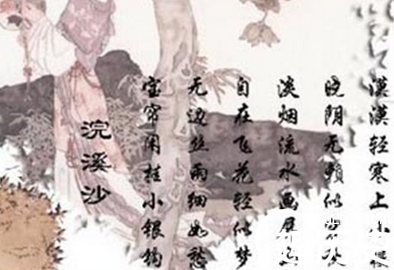 漠漠轻寒上
晓阴无赖似
淡烟流水画屏
自在飞花轻似梦
无边丝雨细如愁
宝帘闲挂小银钩
浣溪沙